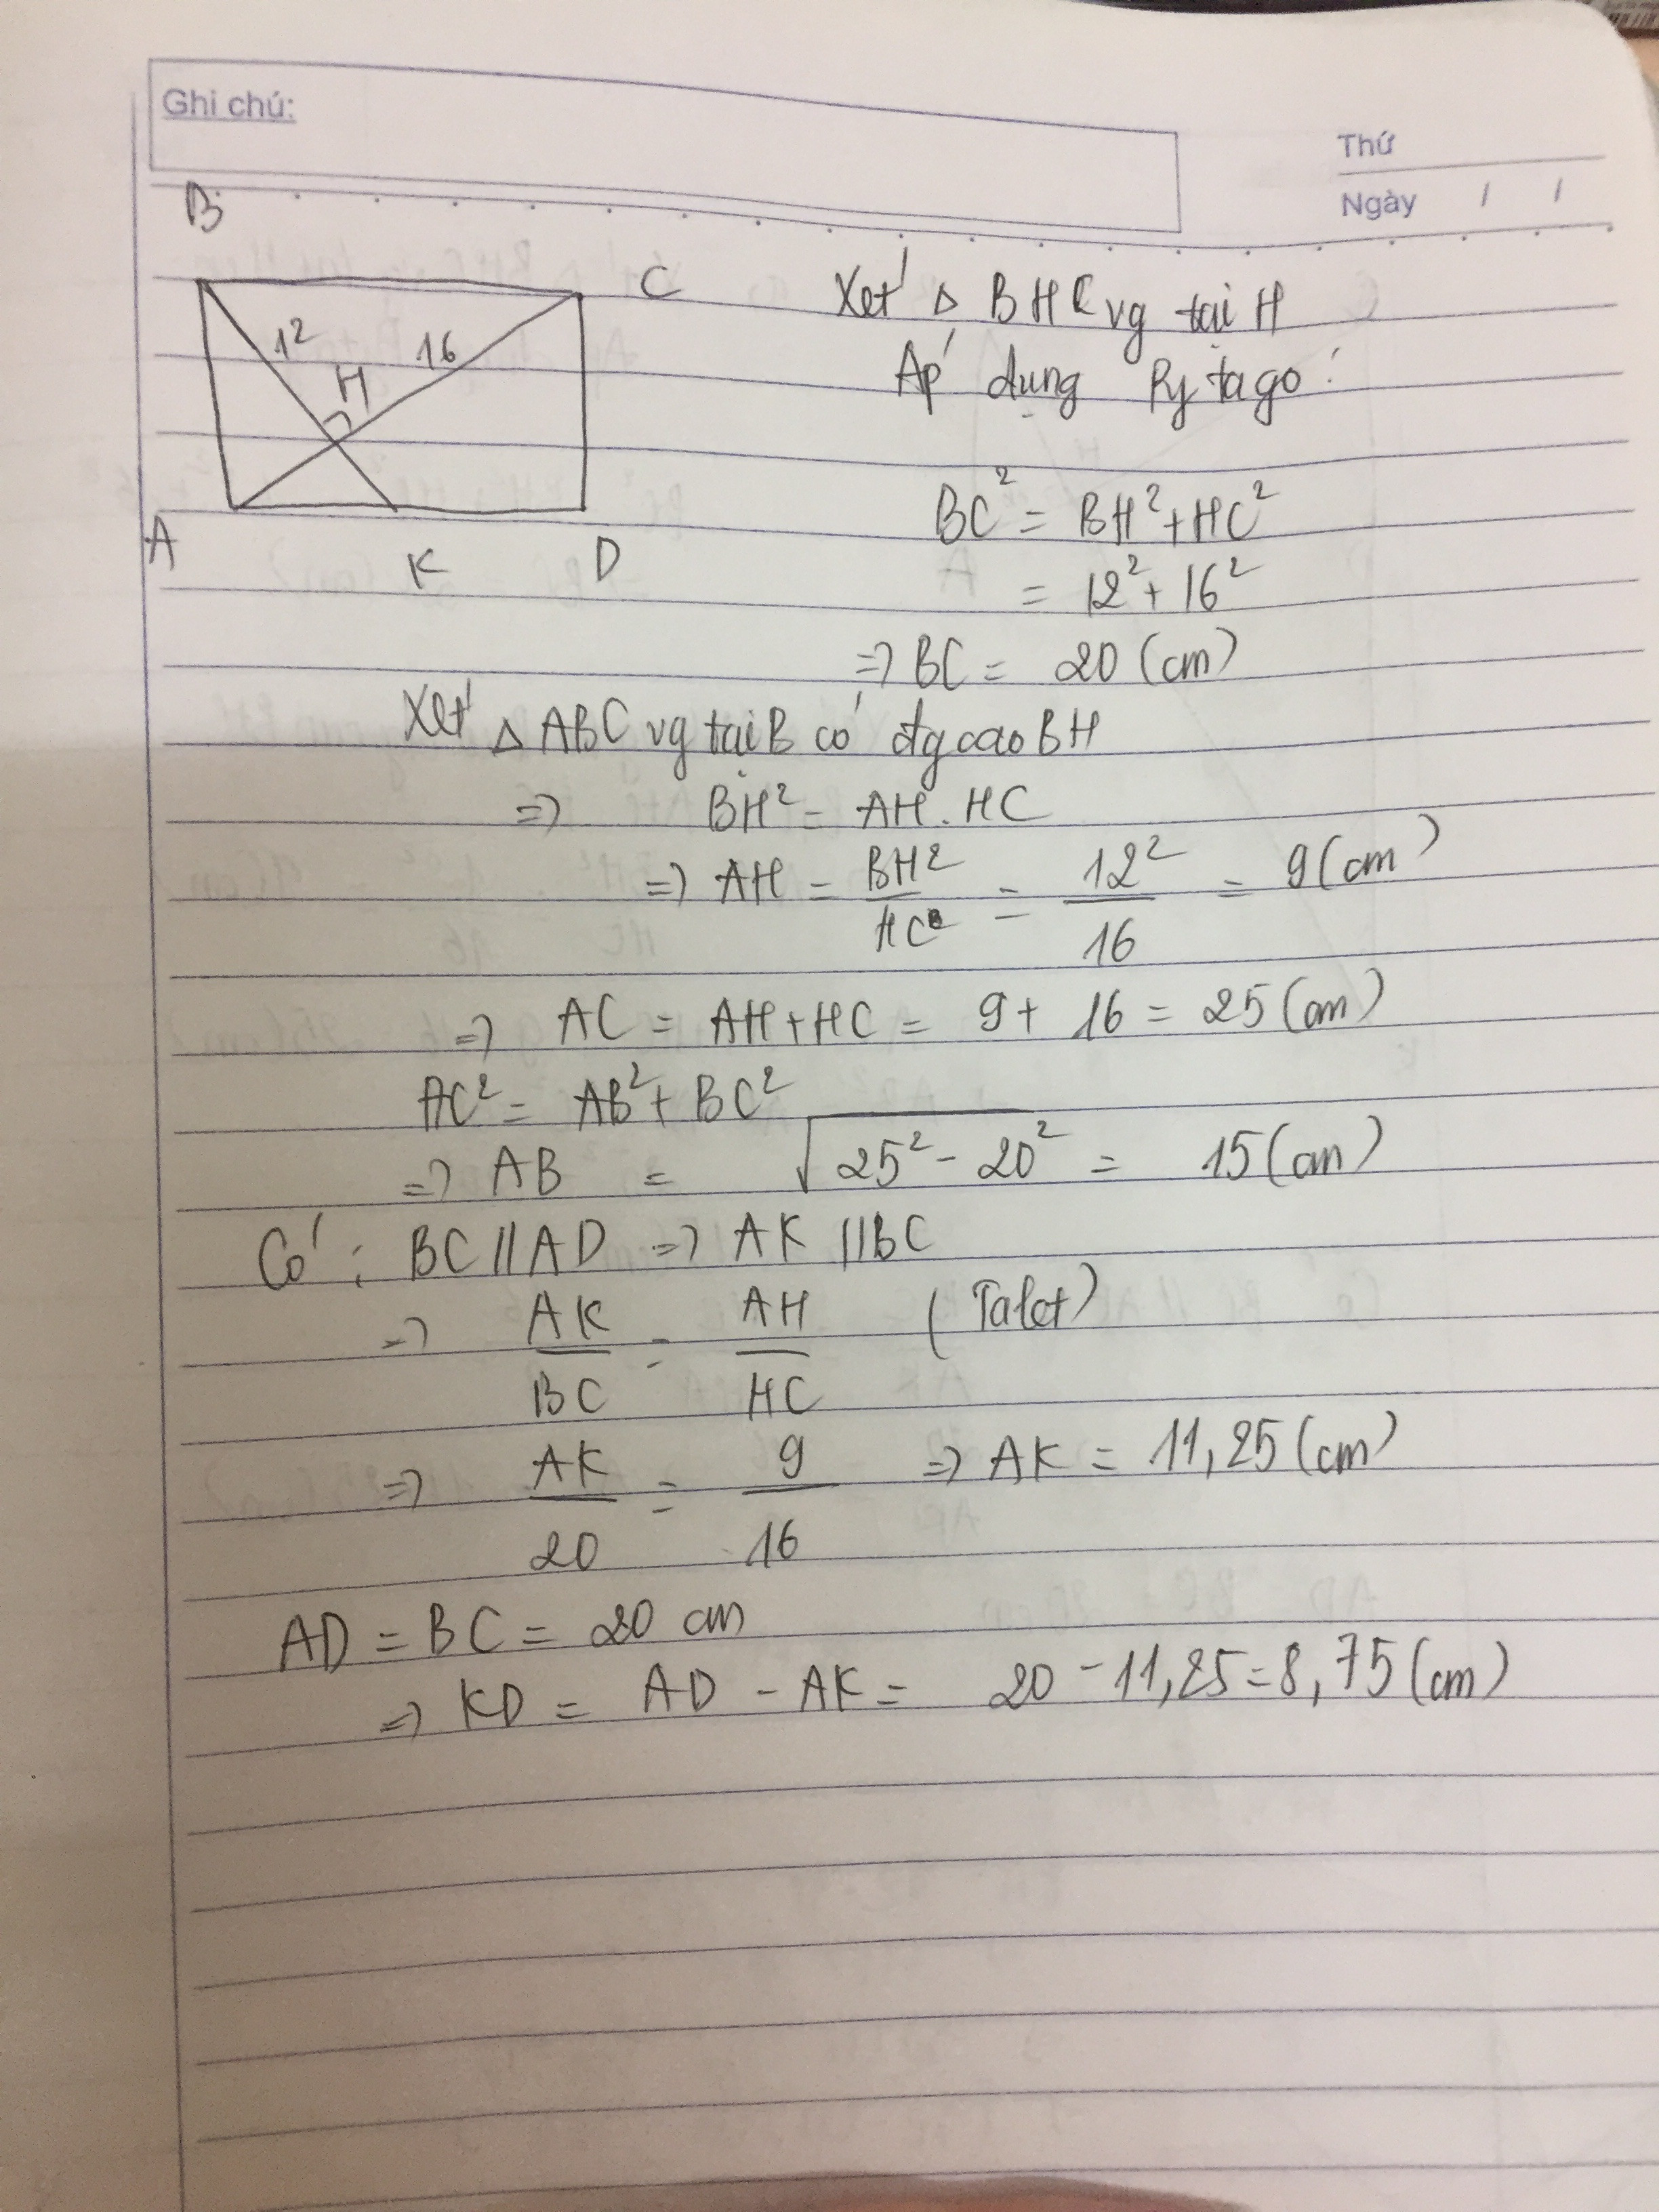 Ghi chú:
Thứ
Ngày / /
B
C
12
16
H
A
K
D
Xét △ BHC vg tại H
Áp dụng Pytago:
BC² = BH² + HC²
= 12² + 16²
=> BC = 20 (cm)
Xét △ ABC vg tại B có đg cao BH
=> BH² = AH . HC
=> AH = BH²/HC = 12²/16 = 9 (cm)
=> AC = AH + HC = 9 + 16 = 25 (cm)
AC² = AB² + BC²
=> AB = √(25² - 20²) = 15 (cm)
Có : BC // AD => AK // BC
=> AK/BC = AH/HC (Talet)
=> AK/20 = 9/16 => AK = 11,25 (cm)
AD = BC = 20 cm
=> KD = AD - AK = 20 - 11,25 = 8,75 (cm)